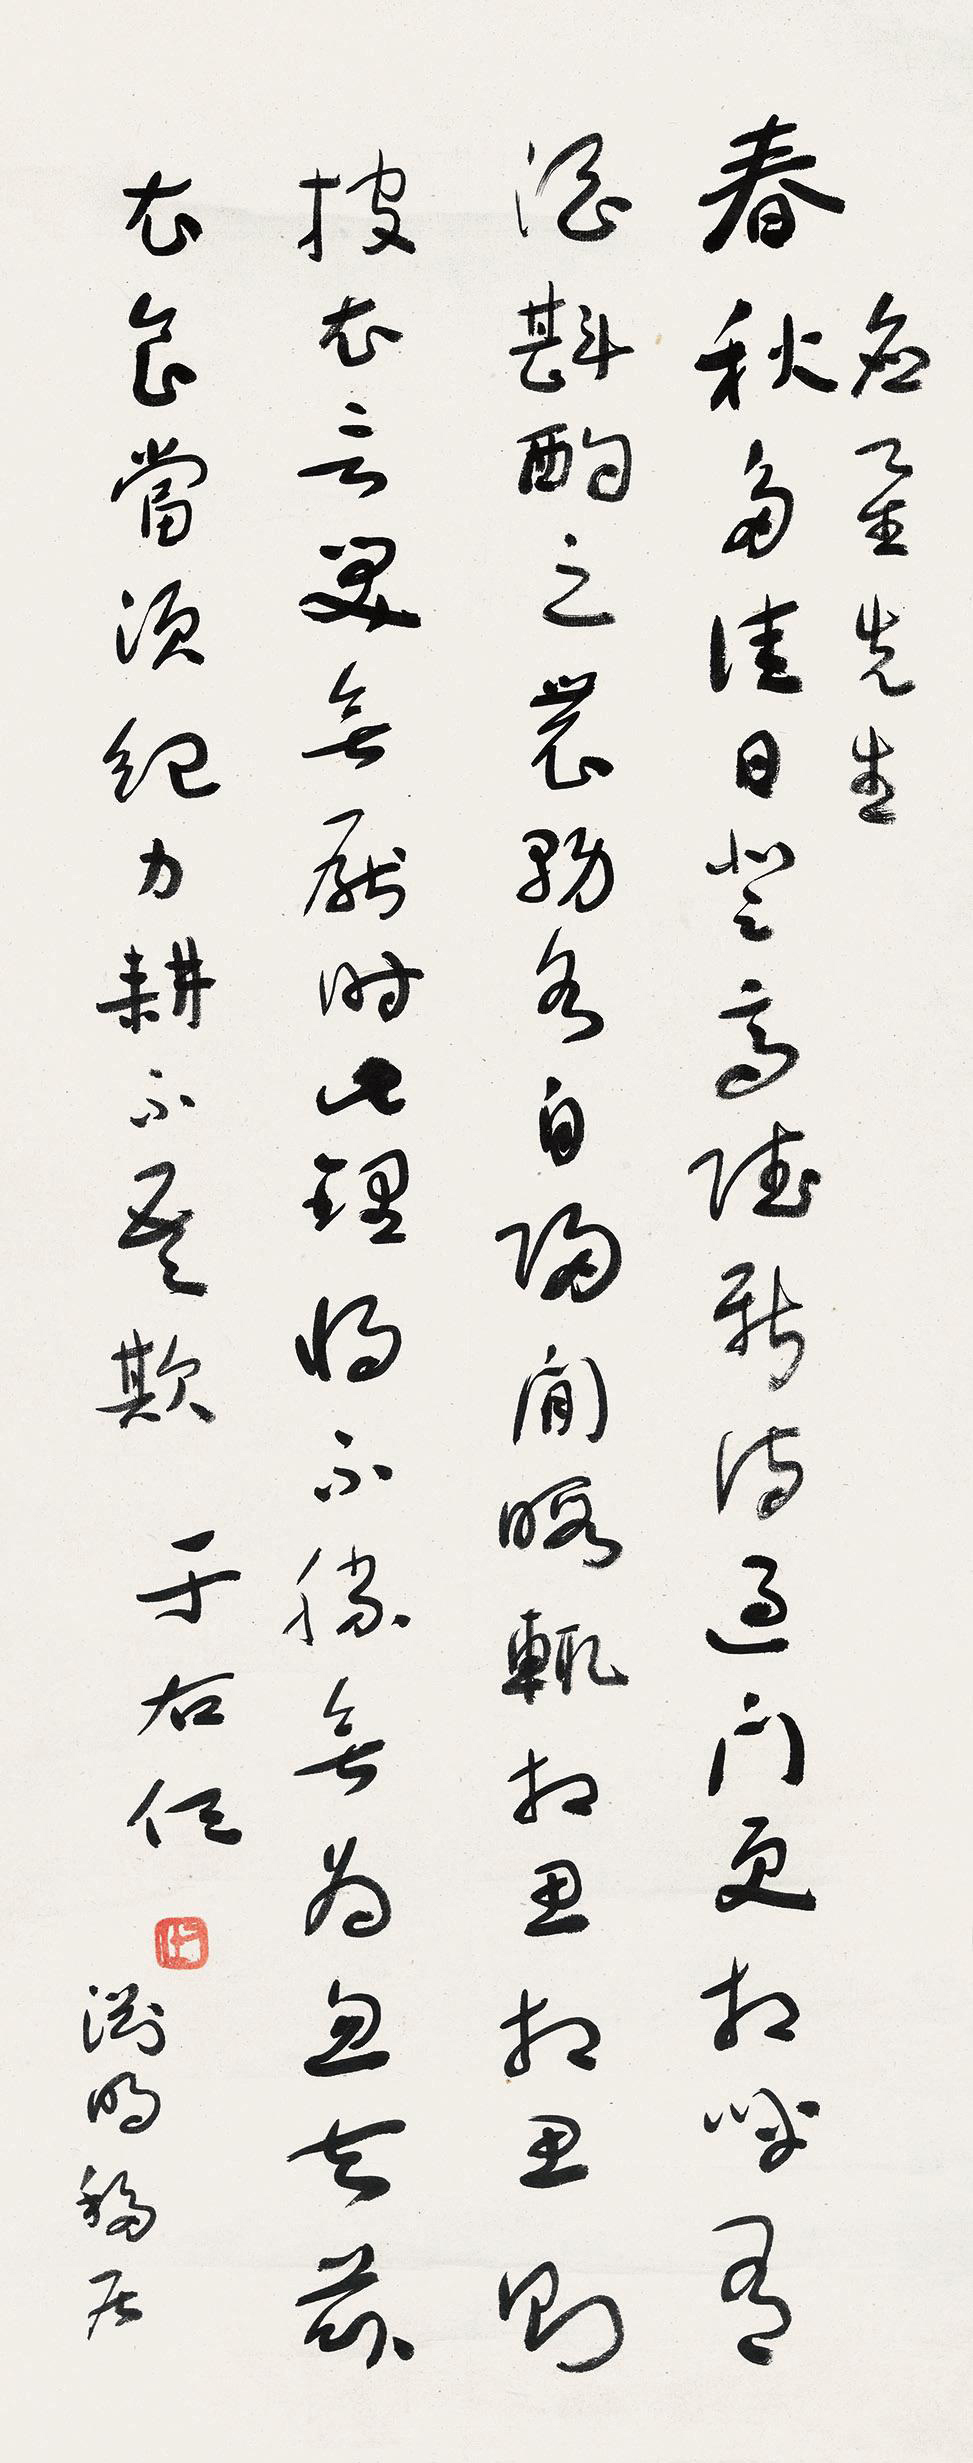 先生
春秋多佳日登高賦新詩過門更相呼有
酒斟酌之農務各自歸閒暇輒相思相思則
披衣言笑無厭時此理將不勝無為忽去茲
衣食當須紀力耕不吾欺 于右任
淵明移居